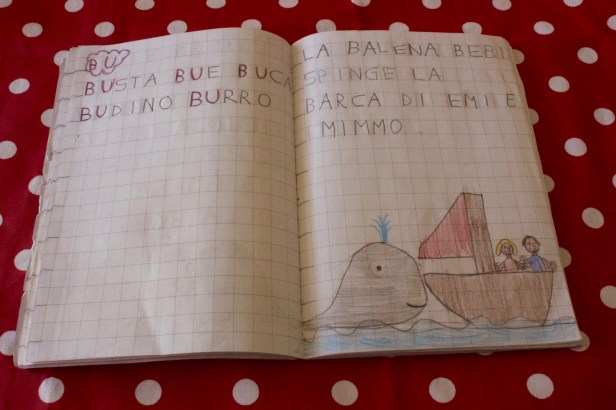 BU
BUSTA BUE BUCA
BUDINO BURRO
LA BALENA BEBI
SPINGE LA
BARCA DI EMI E
MIMMO